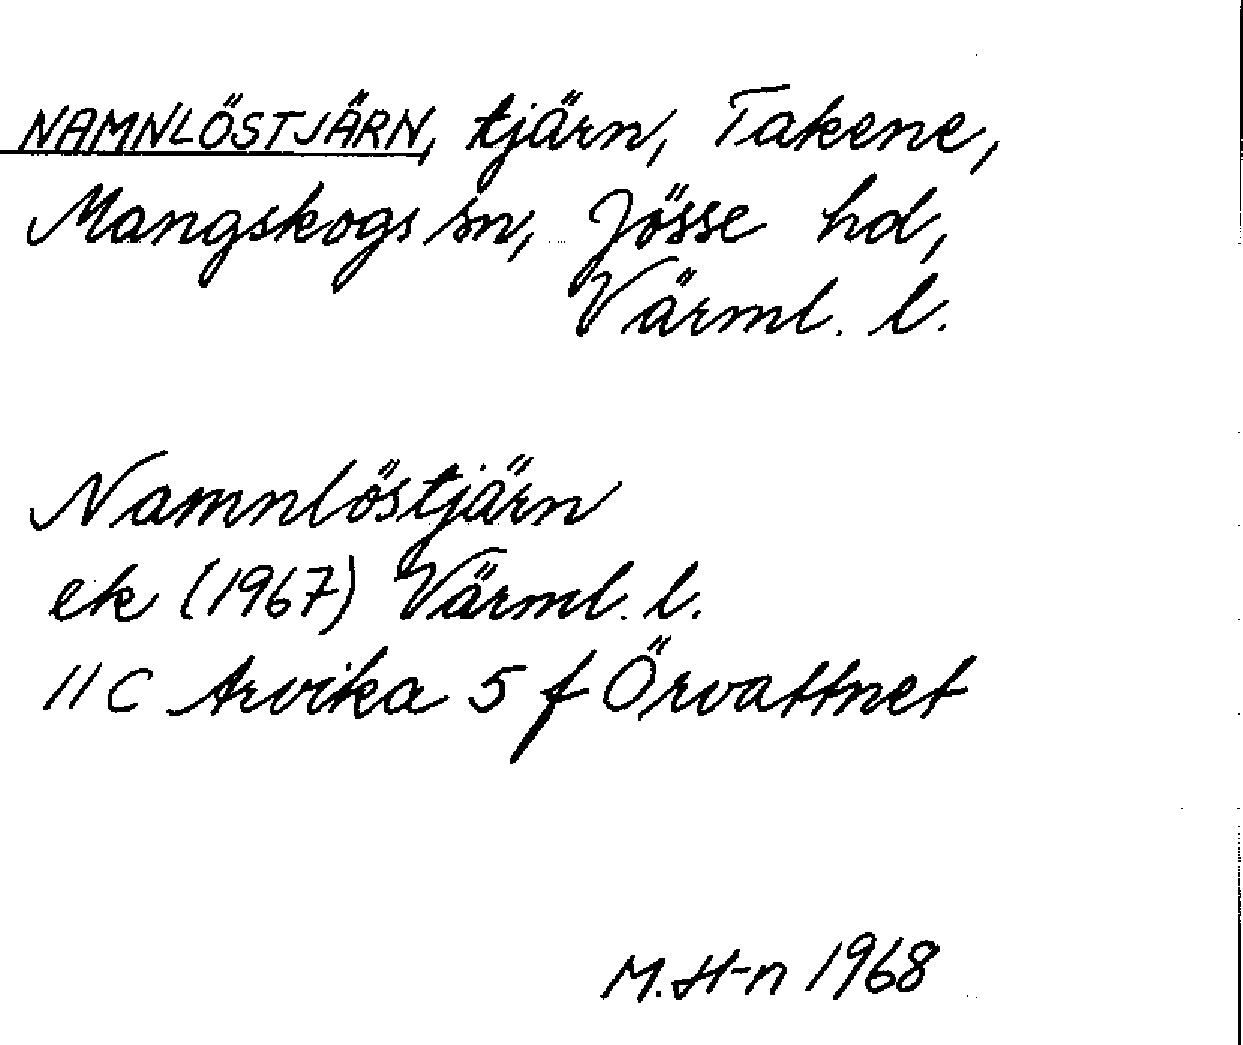 NAMNLÖSTJÄRN, tjärn, Takene,
Mangskogs sn, Jösse hd,
Värml. l.
Namnlöstjärn
ek (1967) Värml. l.
11 C Arvika 5 f Örvattnet
M. H-n 1968